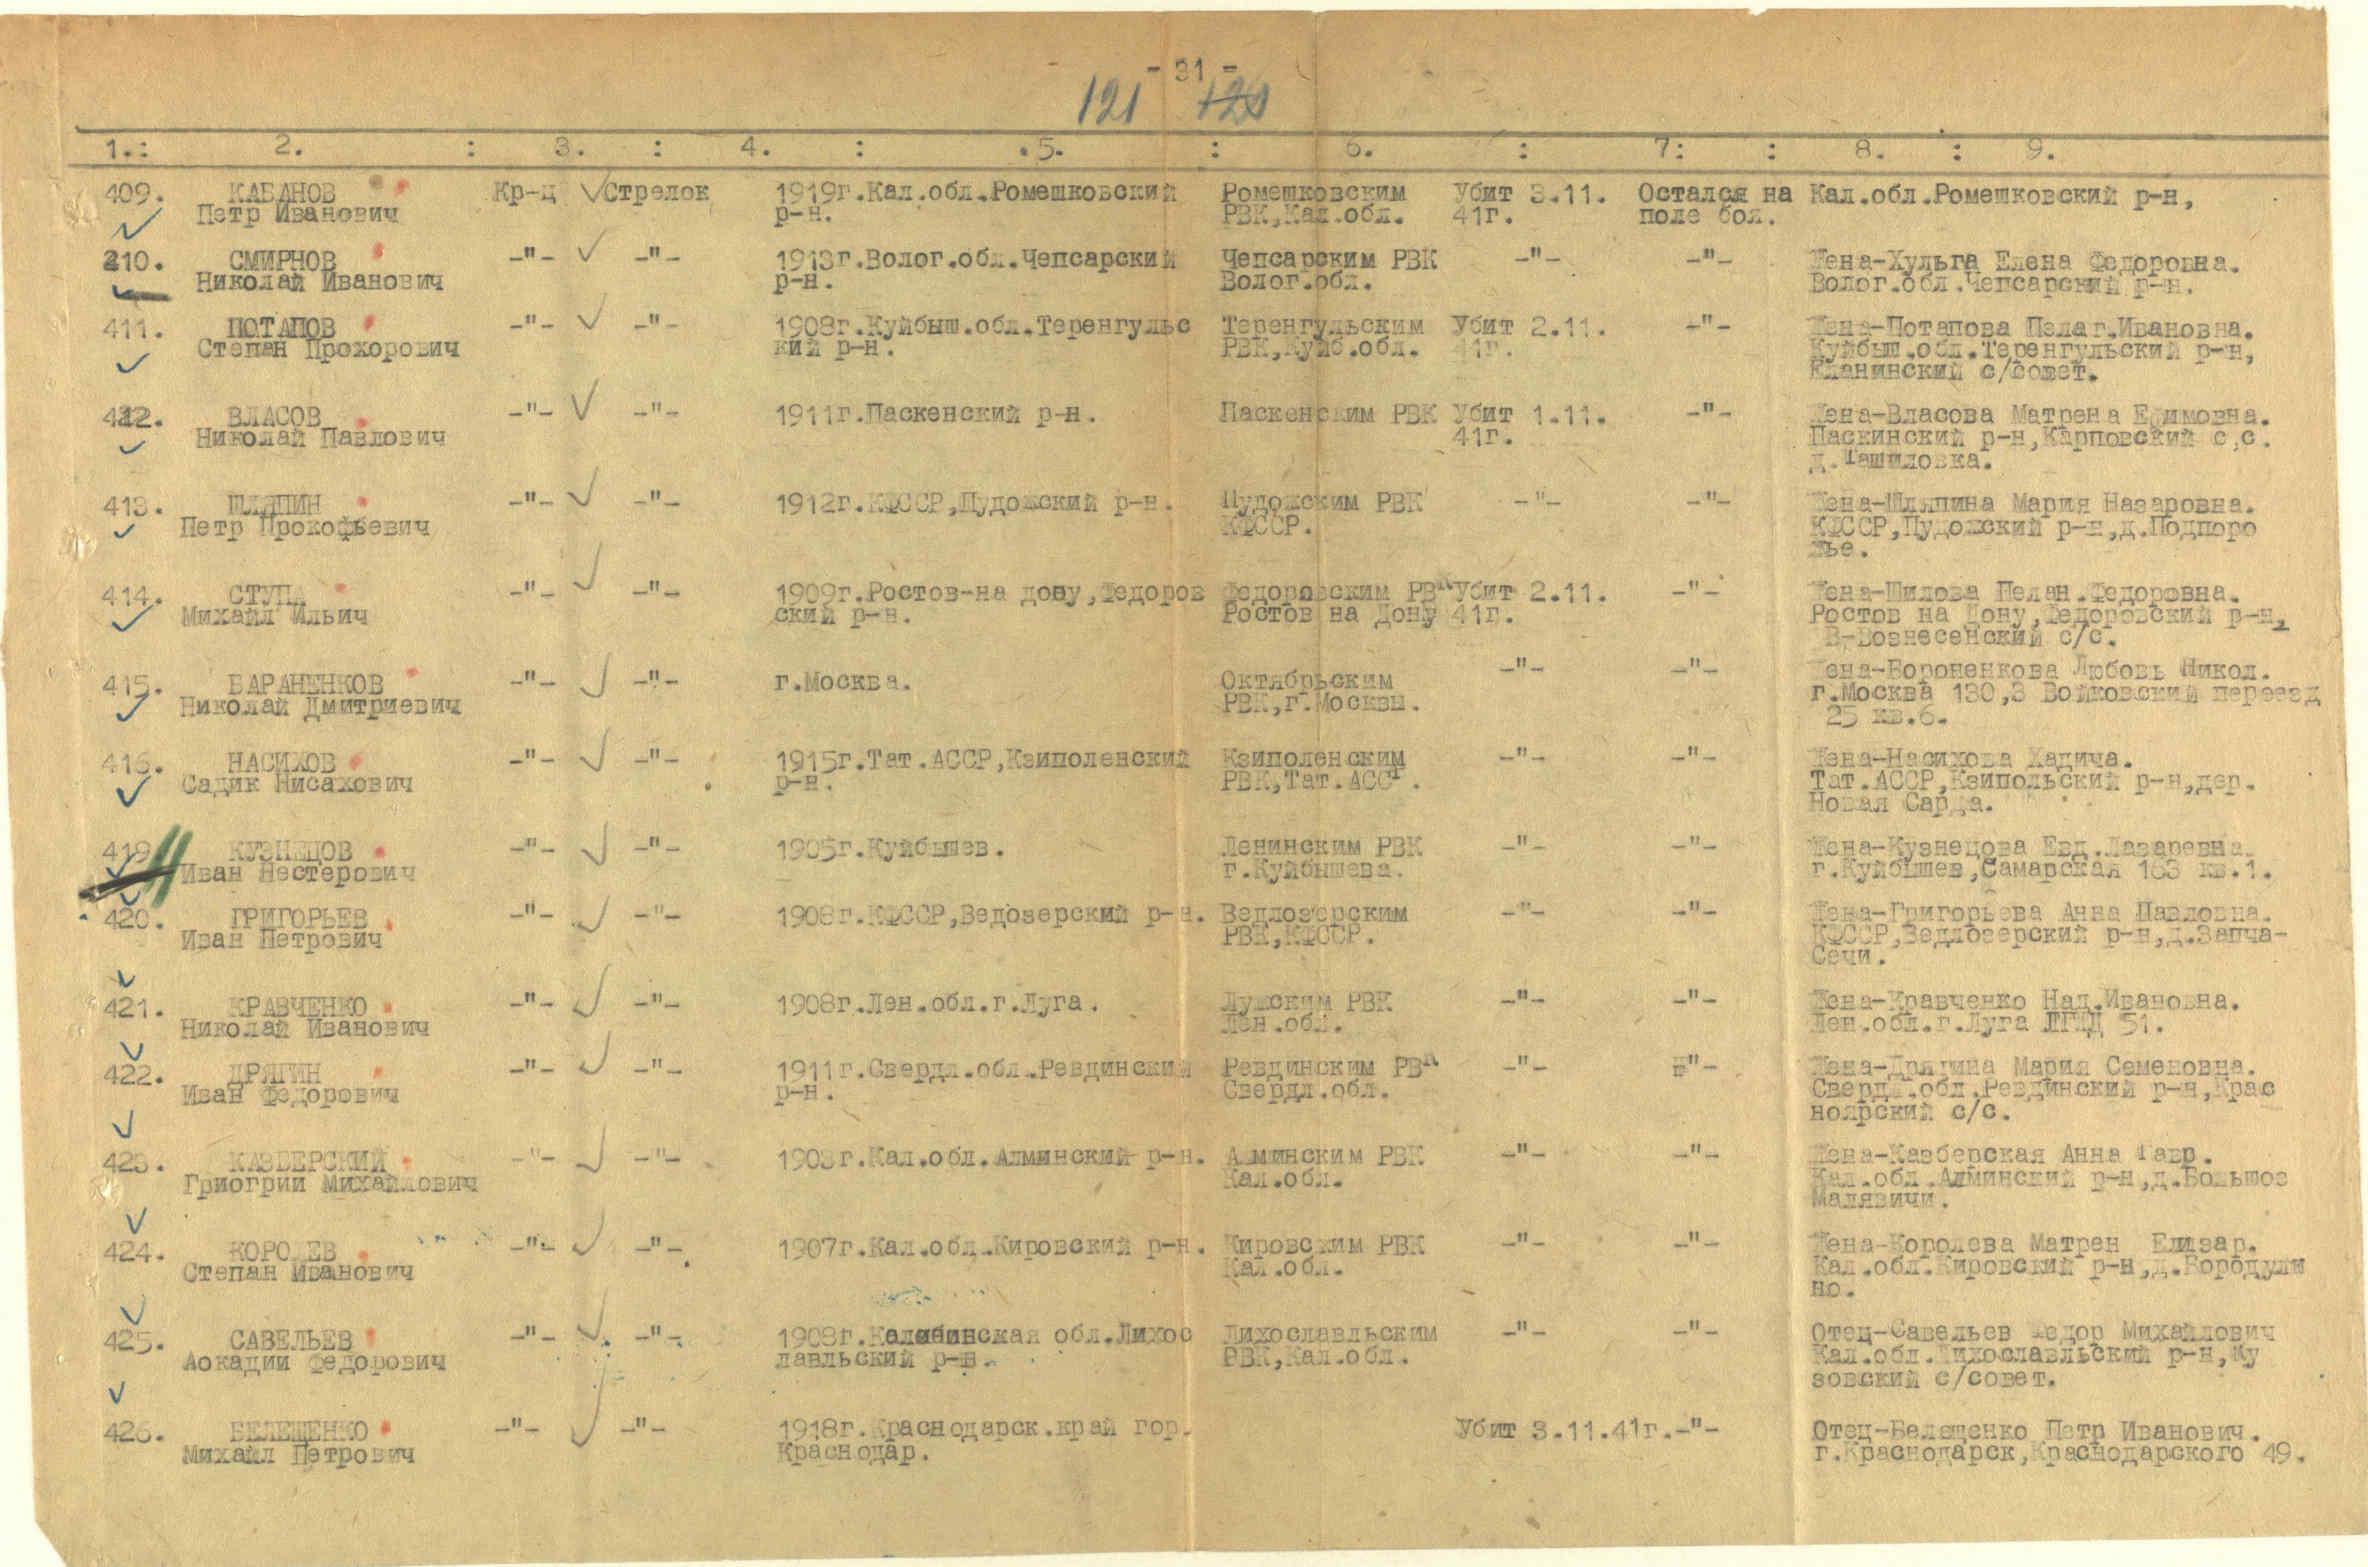 - 31 -
121 120
1.: 2. : 3. : 4. : .5. : 6. : 7: : 8. : 9.
409. КАБАНОВ Кр-ц Стрелок 1919г.Кал.обл.Ромешковский Ромешковским Убит 3.11. Остался на Кал.обл.Ромешковский р-н,
Петр Иванович р-н. РВК,Кал.обл. 41г. поле боя.
210. СМИРНОВ -"- -"- 1913г.Волог.обл.Чепсарский Чепсарским РВК -"- -"- Жена-Хульга Елена Федоровна.
Николай Иванович р-н. Волог.обл. Волог.обл.Чепсарский р-н.
411. ПОТАПОВ -"- -"- 1908г.Куйбыш.обл.Теренгульс Теренгульским Убит 2.11. -"- Жена-Потапова Пелаг.Ивановна.
Степан Прохорович кий р-н. РВК,Куйб.обл. 41г. Куйбыш.обл.Теренгульский р-н,
Еланинский с/совет.
412. ВЛАСОВ -"- -"- 1911г.Паскенский р-н. Паскенским РВК Убит 1.11. -"- Жена-Власова Матрена Ефимовна.
Николай Павлович 41г. Паскинский р-н,Карповский с,с.
д.Ташиловка.
413. ШЛЯПИН -"- -"- 1912г.КФССР,Пудожский р-н. Пудожским РВК -"- -"- Жена-Шляпина Мария Назаровна.
Петр Прокофьевич КФССР. КФССР,Пудожский р-н,д.Подпоро
жье.
414. СТУПА -"- -"- 1909г.Ростов-на дону,Федоров Федоровским РВК Убит 2.11. -"- Жена-Шилова Пелан.Федоровна.
Михайл Ильич ский р-н. Ростов на Дону 41г. Ростов на Дону,Федоровский р-н,
В-Вознесенский с/с.
415. БАРАНЕНКОВ -"- -"- г.Москва. Октябрьским -"- -"- Жена-Вороненкова Любовь Никол.
Николай Дмитриевич РВК,г.Москвы. г.Москва 130,3 Войковский переезд
25 кв.6.
416. НАСИХОВ -"- -"- 1915г.Тат.АССР,Кзиполенский Кзиполенским -"- -"- Жена-Насихова Хадича.
Садик Нисахович р-н. РВК,Тат.АССР. Тат.АССР,Кзипольский р-н,дер.
Новая Сарда.
419 КУЗНЕЦОВ -"- -"- 1905г.Куйбышев. Ленинским РВК -"- -"- Жена-Кузнецова Евд.Лазаревна.
Иван Нестерович г.Куйбышева. г.Куйбышев,Самарская 163 кв.1.
420. ГРИГОРЬЕВ -"- -"- 1908г.КФССР,Ведозерский р-н. Ведлозерским -"- -"- Жена-Григорьева Анна Павловна.
Иван Петрович РВК,КФССР. КФССР,Ведлозерский р-н,д.Запча-
Сечи.
421. КРАВЧЕНКО -"- -"- 1908г.Лен.обл.г.Луга. Лужским РВК -"- -"- Жена-Кравченко Над.Ивановна.
Николай Иванович Лен.обл. Лен.обл.г.Луга 51.
422. ДРЯГИН -"- -"- 1911г.Свердл.обл.Ревдинский Ревдинским РВК -"- -"- Жена-Дрягина Мария Семеновна.
Иван Федорович р-н. Свердл.обл. Свердл.обл.Ревдинский р-н,Крас
ноярский с/с.
423. КАЗБЕРСКИЙ -"- -"- 1903г.Кал.обл.Алминский р-н. Алминским РВК -"- -"- Жена-Казберская Анна Гавр.
Григрии Михайлович Кал.обл. Кал.обл.Алминский р-н,д.Большое
Малявичи.
424. КОРОЛЕВ -"- -"- 1907г.Кал.обл.Кировский р-н. Кировским РВК -"- -"- Жена-Королева Матрен Елизар.
Степан Иванович Кал.обл. Кал.обл.Кировский р-н,д.Бородули
но.
425. САВЕЛЬЕВ -"- -"- 1908г.Калининская обл.Лихос Лихославльским -"- -"- Отец-Савельев Федор Михайлович
Аокадии Федорович лавльский р-н. РВК,Кал.обл. Кал.обл.Лихославльский р-н,Ку
зовский с/совет.
426. БЕЛЕЩЕНКО -"- -"- 1918г.Краснодарск.край гор. Убит 3.11.41г.-"- Отец-Белещенко Петр Иванович.
Михайл Петрович Краснодар. г.Краснодарск,Краснодарского 49.